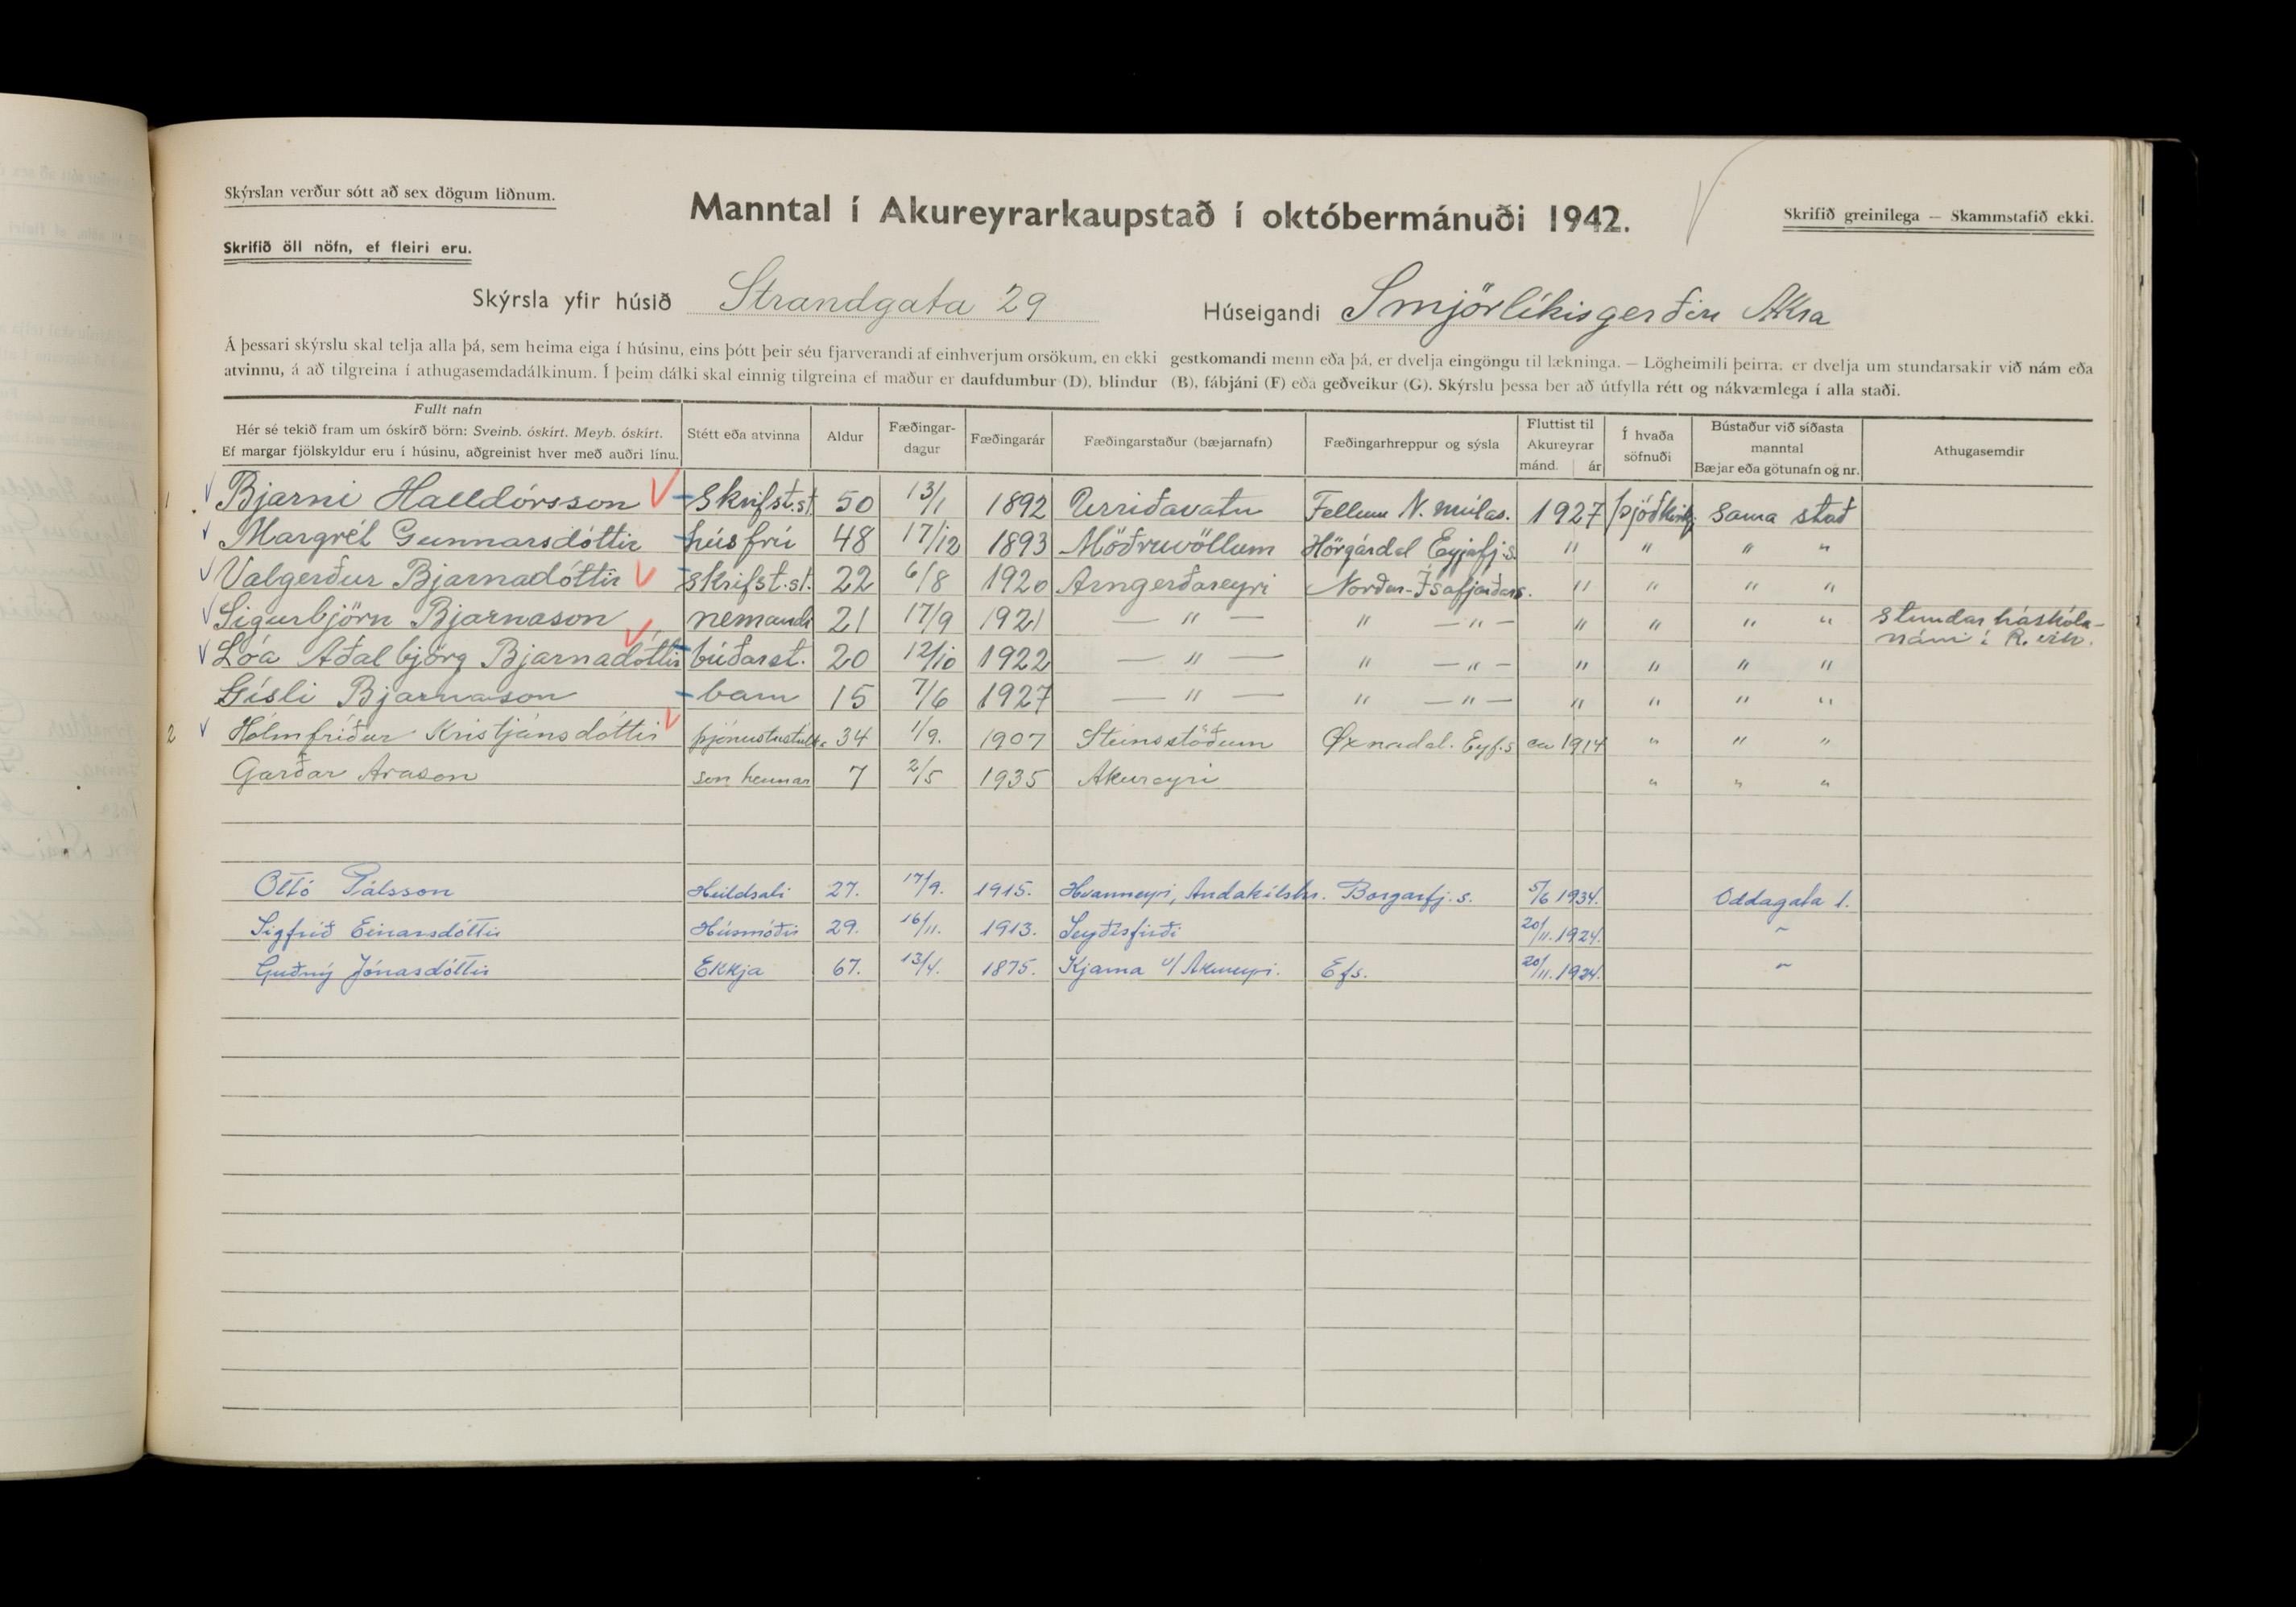 Skýrslan verður sótt að sex dögum liðnum.
Manntal í Akureyrarkaupstað í októbermánuði 1942.
Skrifið greinilega — Skammstafið ekki.
Skrifið öll nöfn, ef fleiri eru.
Skýrsla yfir húsið Strandgata 29 Húseigandi Smjörlíkisgerðin Akra
Á þessari skýrslu skal telja alla þá, sem heima eiga í húsinu, eins þótt þeir séu fjarverandi af einhverjum orsökum, en ekki gestkomandi menn eða þá, er dvelja eingöngu til lækninga. — Lögheimili þeirra, er dvelja um stundarsakir við nám eða
atvinnu, á að tilgreina í athugasemdadálkinum. Í þeim dálki skal einnig tilgreina ef maður er daufdumbur (D), blindur (B), fábjáni (F) eða geðveikur (G). Skýrslu þessa ber að útfylla rétt og nákvæmlega í alla staði.
Fullt nafn
Hér sé tekið fram um óskírð börn: Sveinb. óskírt. Meyb. óskírt.
Ef margar fjölskyldur eru í húsinu, aðgreinist hver með auðri línu.
Stétt eða atvinna
Aldur
Fæðingar-
dagur
Fæðingarár
Fæðingarstaður (bæjarnafn)
Fæðingarhreppur og sýsla
Fluttist til
Akureyrar
mánd. ár
Í hvaða
söfnuði
Bústaður við síðasta
manntal
Bæjar eða götunafn og nr.
Athugasemdir
1 Bjarni Halldórsson Skrifst.st. 50 13/1 1892 Urriðavatn Fellum N. múlas. 1927 þjóðkirkj. Sama stað
Margrét Gunnarsdóttir húsfrú 48 17/12 1893 Möðruvöllum Hörgárdal Eyjafj.s. " " " "
Valgerður Bjarnadóttir skrifst.st. 22 6/8 1920 Arngerðareyri Norður-Ísafjarðars. " " " "
Sigurbjörn Bjarnason nemandi 21 17/9 1921 — " — " — " — " " " " Stundar háskóla-
námi í R.vík.
Lóa Aðalbjörg Bjarnadóttir búðarst. 20 12/10 1922 — " — " — " — " " " "
Gísli Bjarnason barn 15 7/6 1927 — " — " — " — " " " "
2 Hólmfríður Kristjánsdóttir þjónustustúlk. 34 1/9. 1907 Steinsstöðum Öxnadal. Eyf.s ca 1914 " " "
Garðar Arason son hennar 7 2/5 1935 Akureyri " " "
Ottó Pálsson Heildsali 27. 17/9. 1915. Hvanneyri, Andakílshr. Borgarfj. s. 5/6 1934. Oddagata 1.
Sigfríð Einarsdóttir Húsmóðir 29. 16/11. 1913. Seyðisfirði 20/11. 1924. ~
Guðný Jónasdóttir Ekkja 67. 13/4. 1875. Kjarna v/ Akureyri. Efs. 20/11. 1924. ~